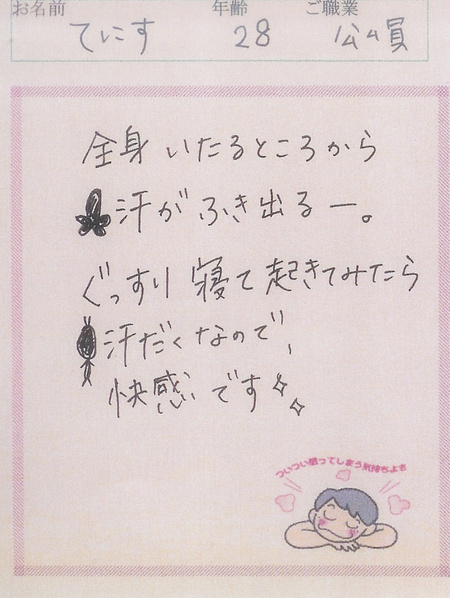 お名前 年齢 ご職業
てにす 28 公ム員
全身いたるところから
汗がふき出るー。
ぐっすり寝て起きてみたら
汗だくなので、
快感です
ついつい眠ってしまう気持ちよさ